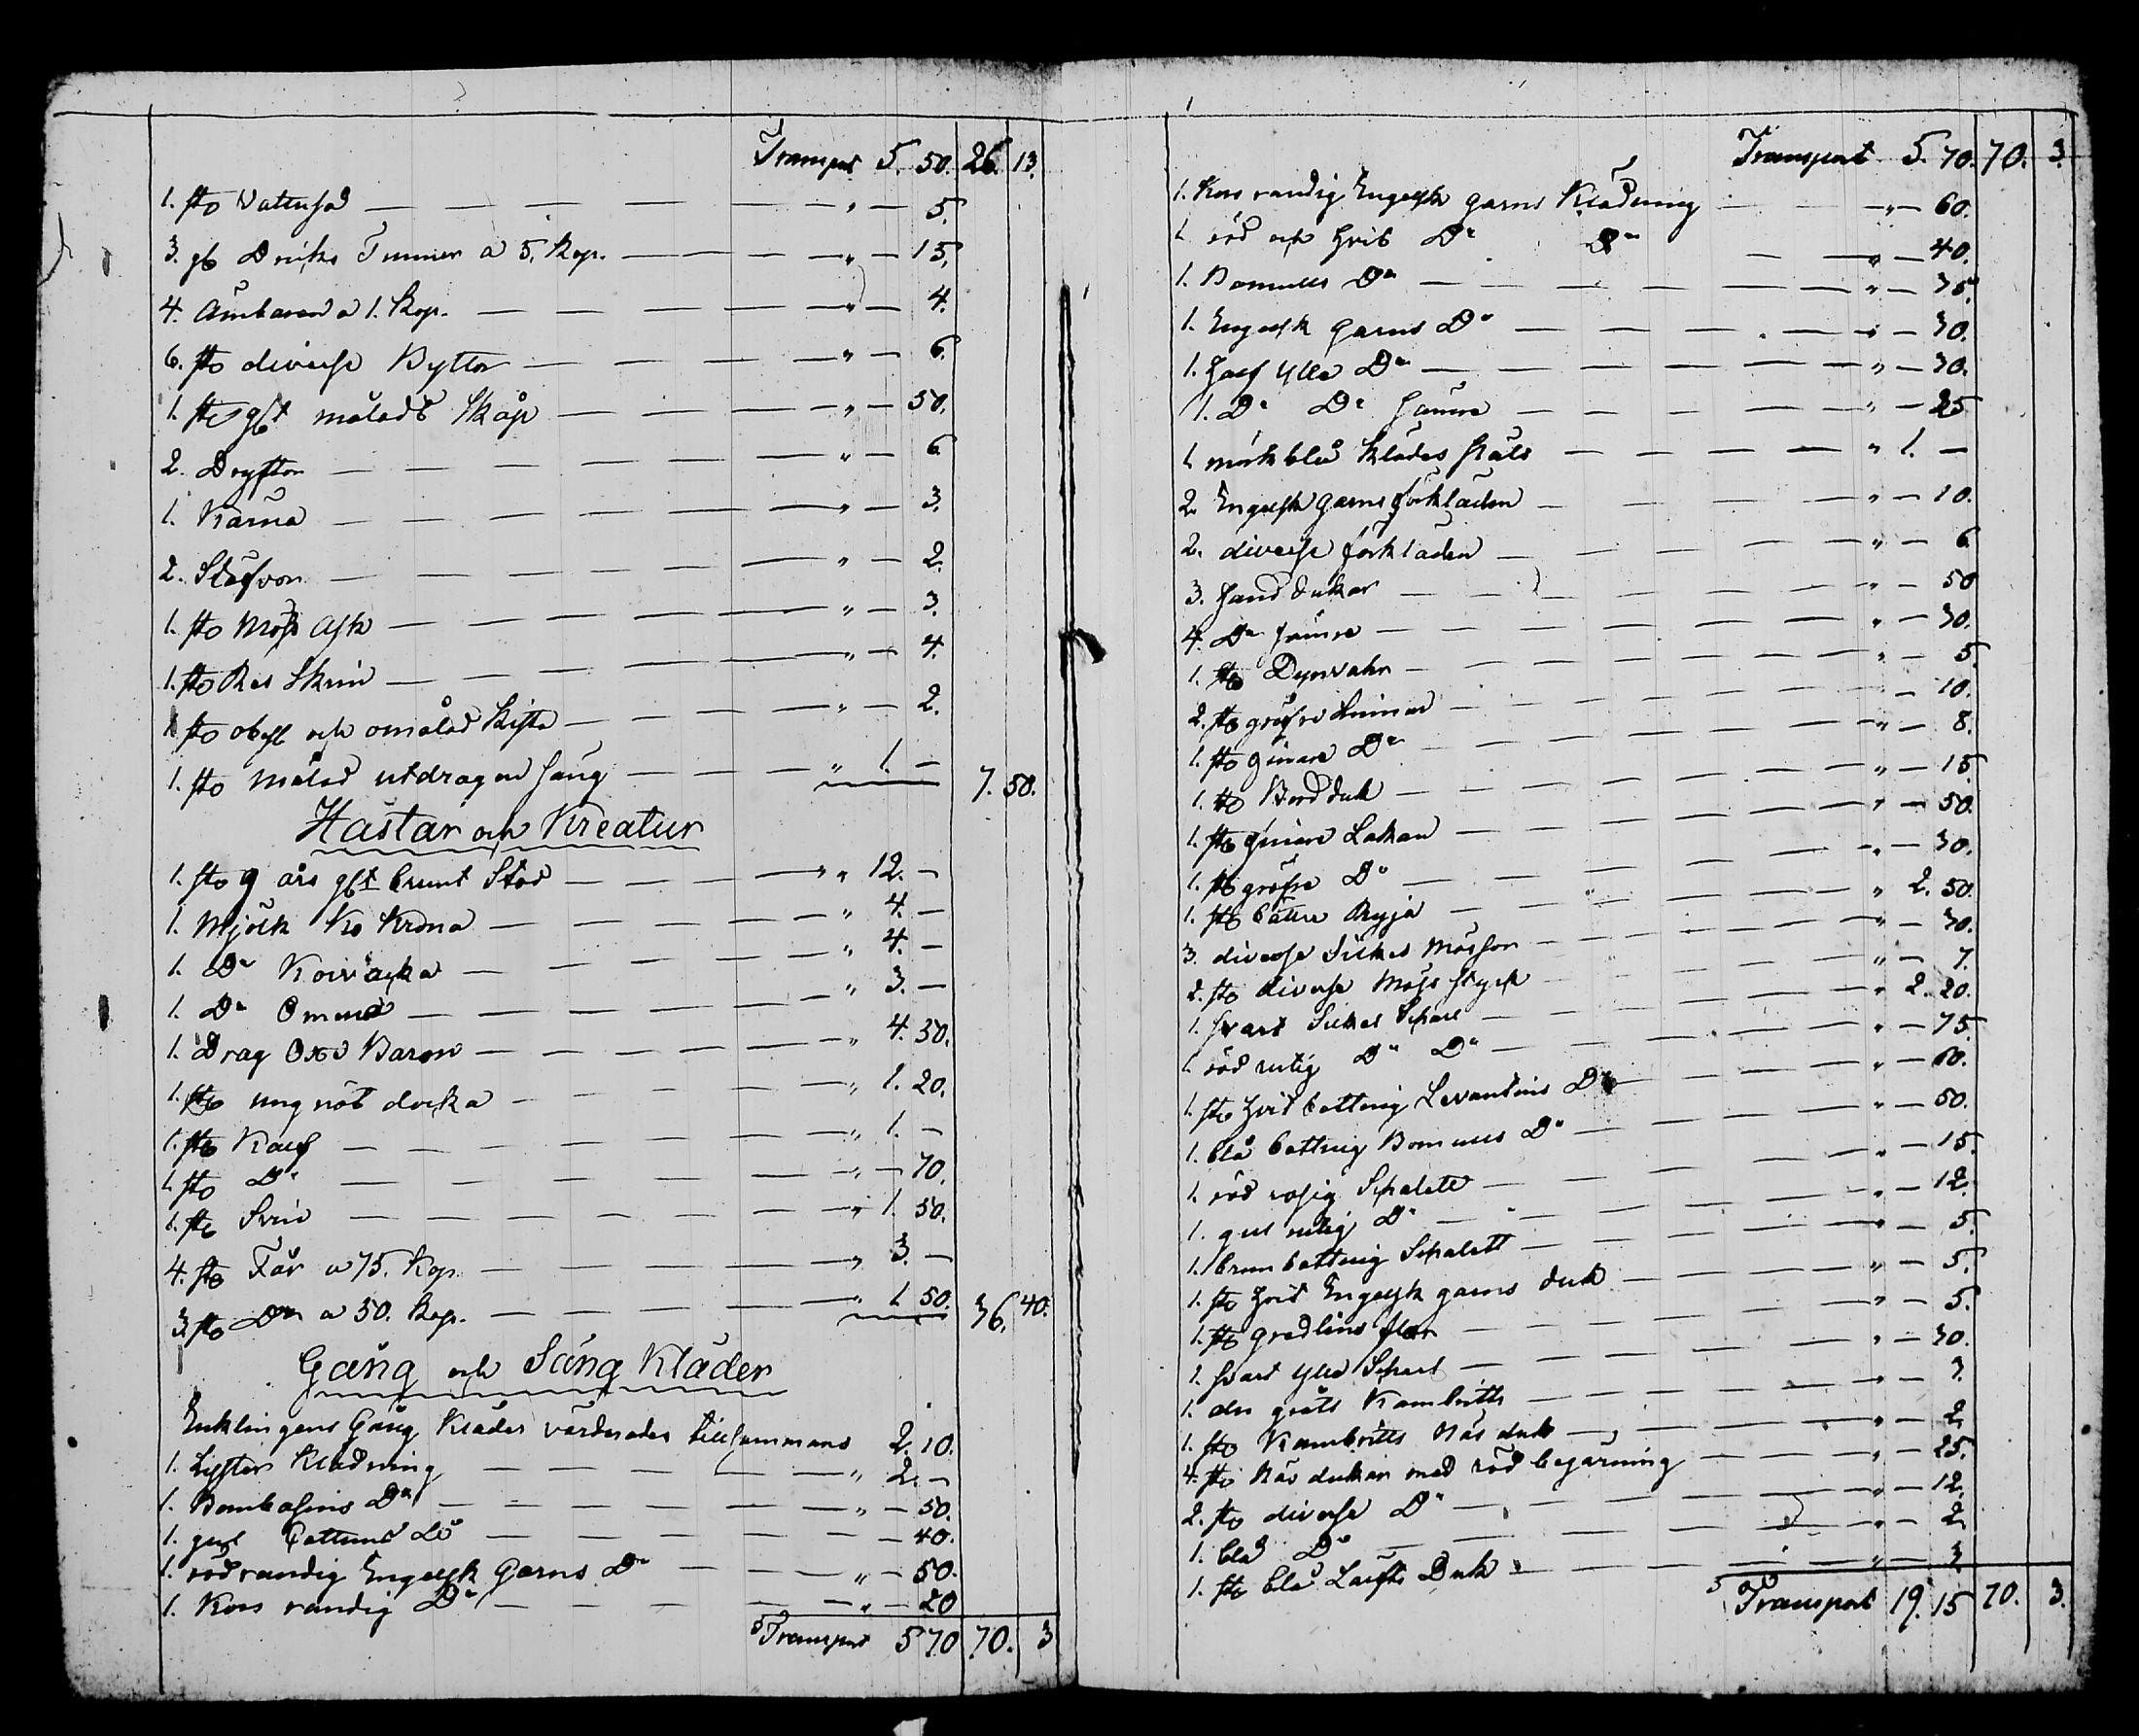 Transport 5. 50. 26. 13.
1. st. Vattuså — " — 5.
3. gl Dricks Tunnor a 5. kop. — " — 15.
4. Ämbaren a 1. kop. — " — 4.
6. st. diverse Byttor — " — 6.
1. st. glt måladt Skåp — " — 50.
2. Dryftor — " — 6
1. Kärna — " — 3.
2. Stäfvor — " — 2.
1. st. Möss Ask — " — 3.
1. st. Res Skrin — " — 4.
1. st. obesl och omålad Kista — " — 2.
1. st. Målad utdragen säng — " 1. — 7. 50.
Hästar och Kreatur
1. st. 9 års glt brunt Stod — " 12. —
1. Mjölk Ko Krona — " 4. —
1. Do — " 4. —
1. Do Omena — " 3. —
1. Drag Oxe Baron — " 4. 30.
1. st. ung nöt — " 1. 20.
1. st. Kalf — " 1. —
1. st. Do — " — 70.
1. st. Svin — " 1. 50.
4. st. Får a 75. Kop. — " 3. —
3. st. Do a 50. kop. — " 1. 50. 36. 40.
Gång och Säng Kläder
Enklingens Gång Kläder värderades tillsammans 2. 10.
1. Lyster Klädning — " 2. —
1. Bombasins Do — " — 50.
1. gul Cattuns Do — — 40.
1. rödrandig Engelsk Garns Do — " — 50.
1. Kors randig Do — " — 20
Transport 5 70 70. 3
Transport 5. 70. 70. 3.
1. Kors randig Engelsk garns Klädning — " — 60.
1. röd och hvit Do Do — " — 40.
1. Bomulls Do — " — 35.
1. Engelsk garns Do — " — 30.
1. Half Ylle Do — " — 30.
1. Do Do sämre — " — 25
1. mörkblå Klädes — " 1. —
2. Engelsk garns förkläden — " — 10.
2. diverse förkläden — " — 6
3. Handdukar — " — 50
4. Do sämre — " — 30.
1. st. Dynvahr — " — 5.
2. st. gröfre — " — 10.
1. st. Do — " — 8.
1. st. Bordduk — " — 15
1. st. finare Lakan — " — 50.
1. st. gröfre Do — " — 30.
1. st. bättre Ryja — " 2. 50.
3. diverse Silkes Mössor — " — 30.
2. st. diverse Möss styck — " — 7.
1. svart Silkes Schal — " 2. 20.
1. röd rutig Do Do — " — 75.
1. st. hvitbottnig Levantins Do — " — 60.
1. blå bottnig Bomulls Do — " — 50.
1. röd rosig Schalett — " — 15.
1. gul rutig Do — " — 12.
1. brunbottnig Schalett — " — 5.
1. st. hvit Engelsk garns duk — " — 5.
1. st. gredlins flor — " — 5.
1. svart Ylle Schal — " — 30.
1. Kambritts — " — 3.
1. st. Kambritts Näs duk — " — 2
4. st. Näs dukar med röd — " — 25.
2. st. diverse Do — " — 12.
1. blå Do — " — 2
1. st. blå Lärfts Duk — " — 3
Transport 19. 15 70. 3.